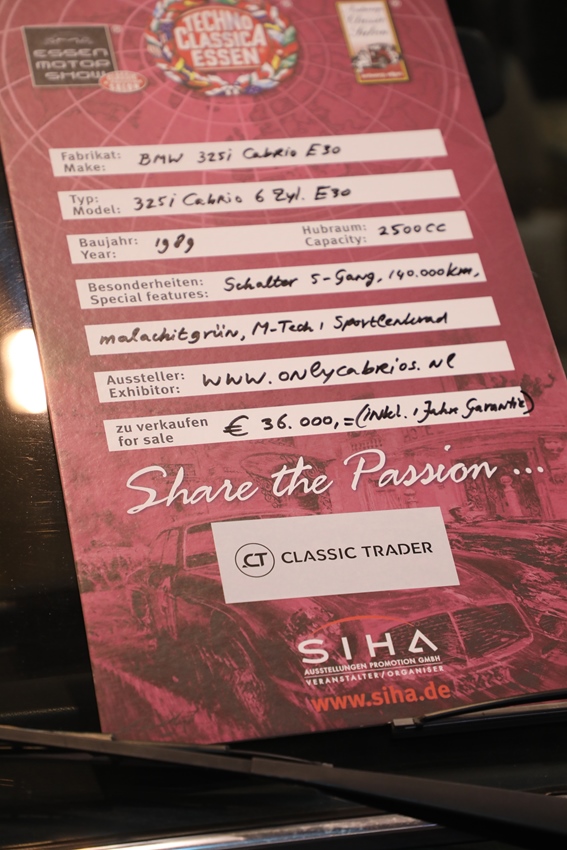 ESSEN
MOTOR
SHOW
TECHNO
CLASSICA
ESSEN
Fabrikat:
Make:
BMW 325i Cabrio E30
Typ:
Model:
325i Cabrio 6 Zyl. E30
Baujahr:
Year:
1989
Hubraum:
Capacity:
2500cc
Besonderheiten:
Special features:
Schalter 5-Gang, 140.000km,
malachitgrün, M-Tech, Sportlenkrad
Aussteller:
Exhibitor:
www.onlycabrios.nl
zu verkaufen
for sale
€ 36.000,= (inkl. 1 Jahr Garantie)
Share the Passion ...
CT CLASSIC TRADER
SIHA
AUSSTELLUNGEN PROMOTION GMBH
VERANSTALTER/ORGANISER
www.siha.de